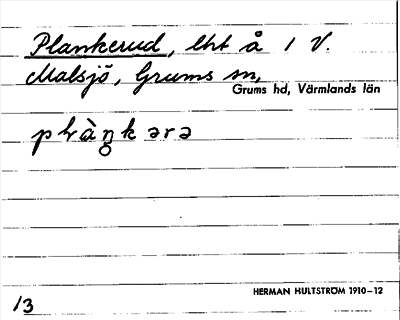 Plankerud, lht å 1 V.
Malsjö, Grums sn,
Grums hd, Värmlands län
HERMAN HULTSTRÖM 1910–12
13